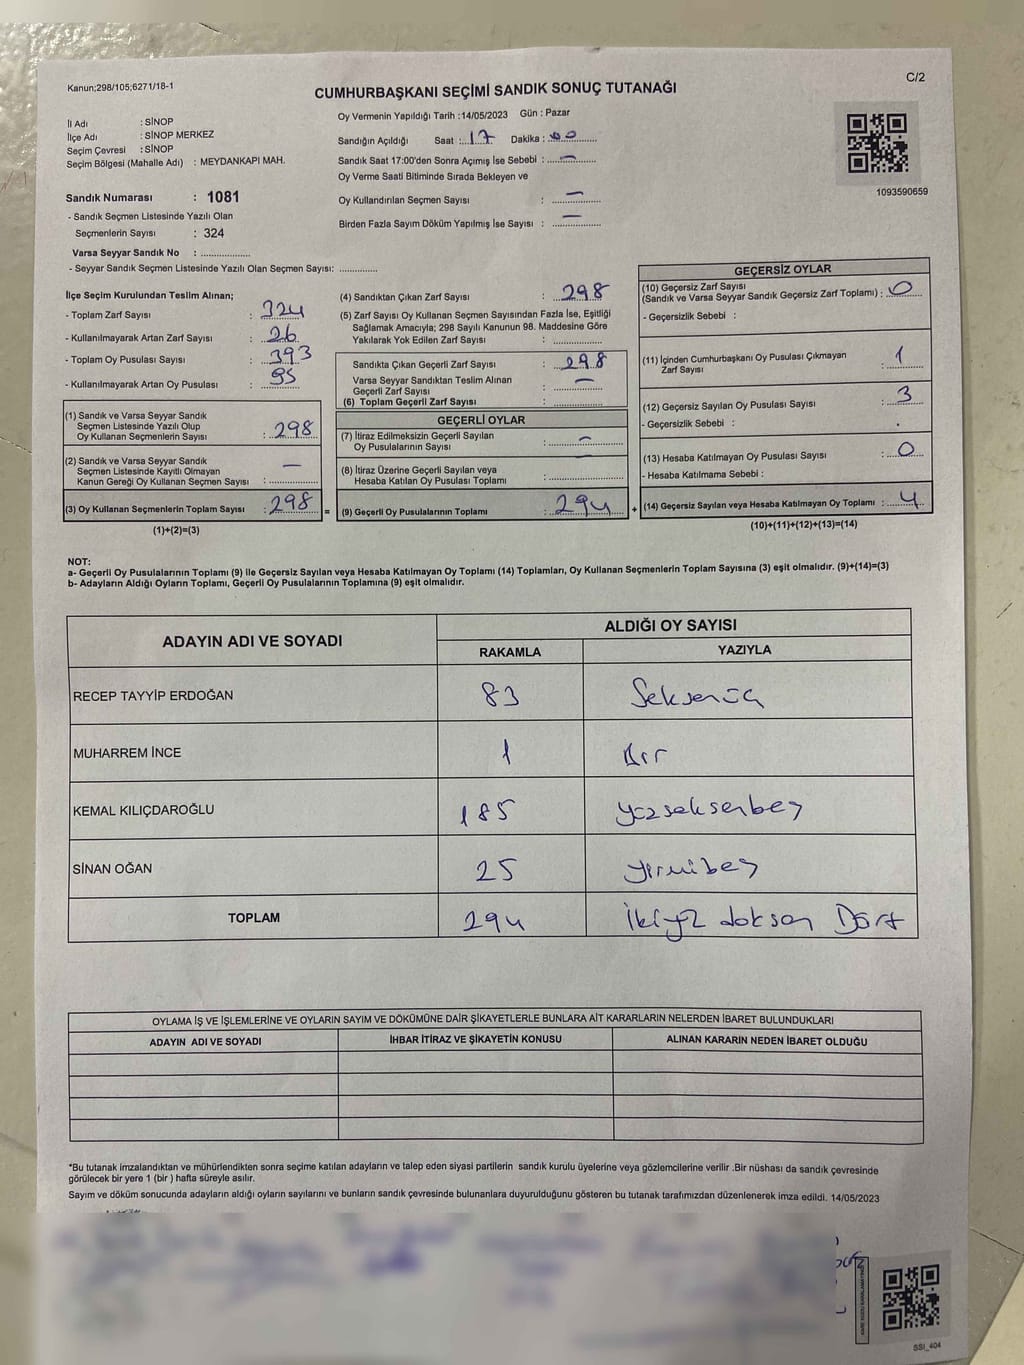 Kanun;298/105;6271/18-1
C/2
CUMHURBAŞKANI SEÇİMİ SANDIK SONUÇ TUTANAĞI
İl Adı : SİNOP
İlçe Adı : SİNOP MERKEZ
Seçim Çevresi : SİNOP
Seçim Bölgesi (Mahalle Adı) : MEYDANKAPI MAH.
Sandık Numarası : 1081
- Sandık Seçmen Listesinde Yazılı Olan
Seçmenlerin Sayısı : 324
Varsa Seyyar Sandık No : ..................
- Seyyar Sandık Seçmen Listesinde Yazılı Olan Seçmen Sayısı: ..............
Oy Vermenin Yapıldığı Tarih :14/05/2023 Gün : Pazar
Sandığın Açıldığı Saat : 17 Dakika : 00
Sandık Saat 17:00'den Sonra Açımış İse Sebebi : —
Oy Verme Saati Bitiminde Sırada Bekleyen ve
Oy Kullandırılan Seçmen Sayısı : —
Birden Fazla Sayım Döküm Yapılmış İse Sayısı : —
1093590659
İlçe Seçim Kurulundan Teslim Alınan;
- Toplam Zarf Sayısı : 324
- Kullanılmayarak Artan Zarf Sayısı : 26
- Toplam Oy Pusulası Sayısı : 393
- Kullanılmayarak Artan Oy Pusulası : 95
(1) Sandık ve Varsa Seyyar Sandık
Seçmen Listesinde Yazılı Olup
Oy Kullanan Seçmenlerin Sayısı : 298
(2) Sandık ve Varsa Seyyar Sandık
Seçmen Listesinde Kayıtlı Olmayan
Kanun Gereği Oy Kullanan Seçmen Sayısı : —
(3) Oy Kullanan Seçmenlerin Toplam Sayısı : 298 =
(1)+(2)=(3)
(4) Sandıktan Çıkan Zarf Sayısı : 298
(5) Zarf Sayısı Oy Kullanan Seçmen Sayısından Fazla İse, Eşitliği
Sağlamak Amacıyla; 298 Sayılı Kanunun 98. Maddesine Göre
Yakılarak Yok Edilen Zarf Sayısı : ................
Sandıkta Çıkan Geçerli Zarf Sayısı : 298
Varsa Seyyar Sandıktan Teslim Alınan
Geçerli Zarf Sayısı : —
(6) Toplam Geçerli Zarf Sayısı : ................
GEÇERLİ OYLAR
(7) İtiraz Edilmeksizin Geçerli Sayılan
Oy Pusulalarının Sayısı : —
(8) İtiraz Üzerine Geçerli Sayılan veya
Hesaba Katılan Oy Pusulası Toplamı : —
(9) Geçerli Oy Pusulalarının Toplamı : 294 +
GEÇERSİZ OYLAR
(10) Geçersiz Zarf Sayısı
(Sandık ve Varsa Seyyar Sandık Geçersiz Zarf Toplamı) : 0
- Geçersizlik Sebebi :
(11) İçinden Cumhurbaşkanı Oy Pusulası Çıkmayan
Zarf Sayısı : 1
(12) Geçersiz Sayılan Oy Pusulası Sayısı : 3
- Geçersizlik Sebebi :
(13) Hesaba Katılmayan Oy Pusulası Sayısı : 0
- Hesaba Katılmama Sebebi :
(14) Geçersiz Sayılan veya Hesaba Katılmayan Oy Toplamı : 4
(10)+(11)+(12)+(13)=(14)
NOT:
a- Geçerli Oy Pusulalarının Toplamı (9) ile Geçersiz Sayılan veya Hesaba Katılmayan Oy Toplamı (14) Toplamları, Oy Kullanan Seçmenlerin Toplam Sayısına (3) eşit olmalıdır. (9)+(14)=(3)
b- Adayların Aldığı Oyların Toplamı, Geçerli Oy Pusulalarının Toplamına (9) eşit olmalıdır.
ADAYIN ADI VE SOYADI
ALDIĞI OY SAYISI
RAKAMLA YAZIYLA
RECEP TAYYİP ERDOĞAN 83 Seksenüç
MUHARREM İNCE 1 Bir
KEMAL KILIÇDAROĞLU 185 yüzseksenbeş
SİNAN OĞAN 25 yirmibeş
TOPLAM 294 İkiyüz doksan Dört
OYLAMA İŞ VE İŞLEMLERİNE VE OYLARIN SAYIM VE DÖKÜMÜNE DAİR ŞİKAYETLERLE BUNLARA AİT KARARLARIN NELERDEN İBARET BULUNDUKLARI
ADAYIN ADI VE SOYADI İHBAR İTİRAZ VE ŞİKAYETİN KONUSU ALINAN KARARIN NEDEN İBARET OLDUĞU
*Bu tutanak imzalandıktan ve mühürlendikten sonra seçime katılan adayların ve talep eden siyasi partilerin sandık kurulu üyelerine veya gözlemcilerine verilir .Bir nüshası da sandık çevresinde
görülecek bir yere 1 (bir ) hafta süreyle asılır.
Sayım ve döküm sonucunda adayların aldığı oyların sayılarını ve bunların sandık çevresinde bulunanlara duyurulduğunu gösteren bu tutanak tarafımızdan düzenlenerek imza edildi. 14/05/2023
SSI_404